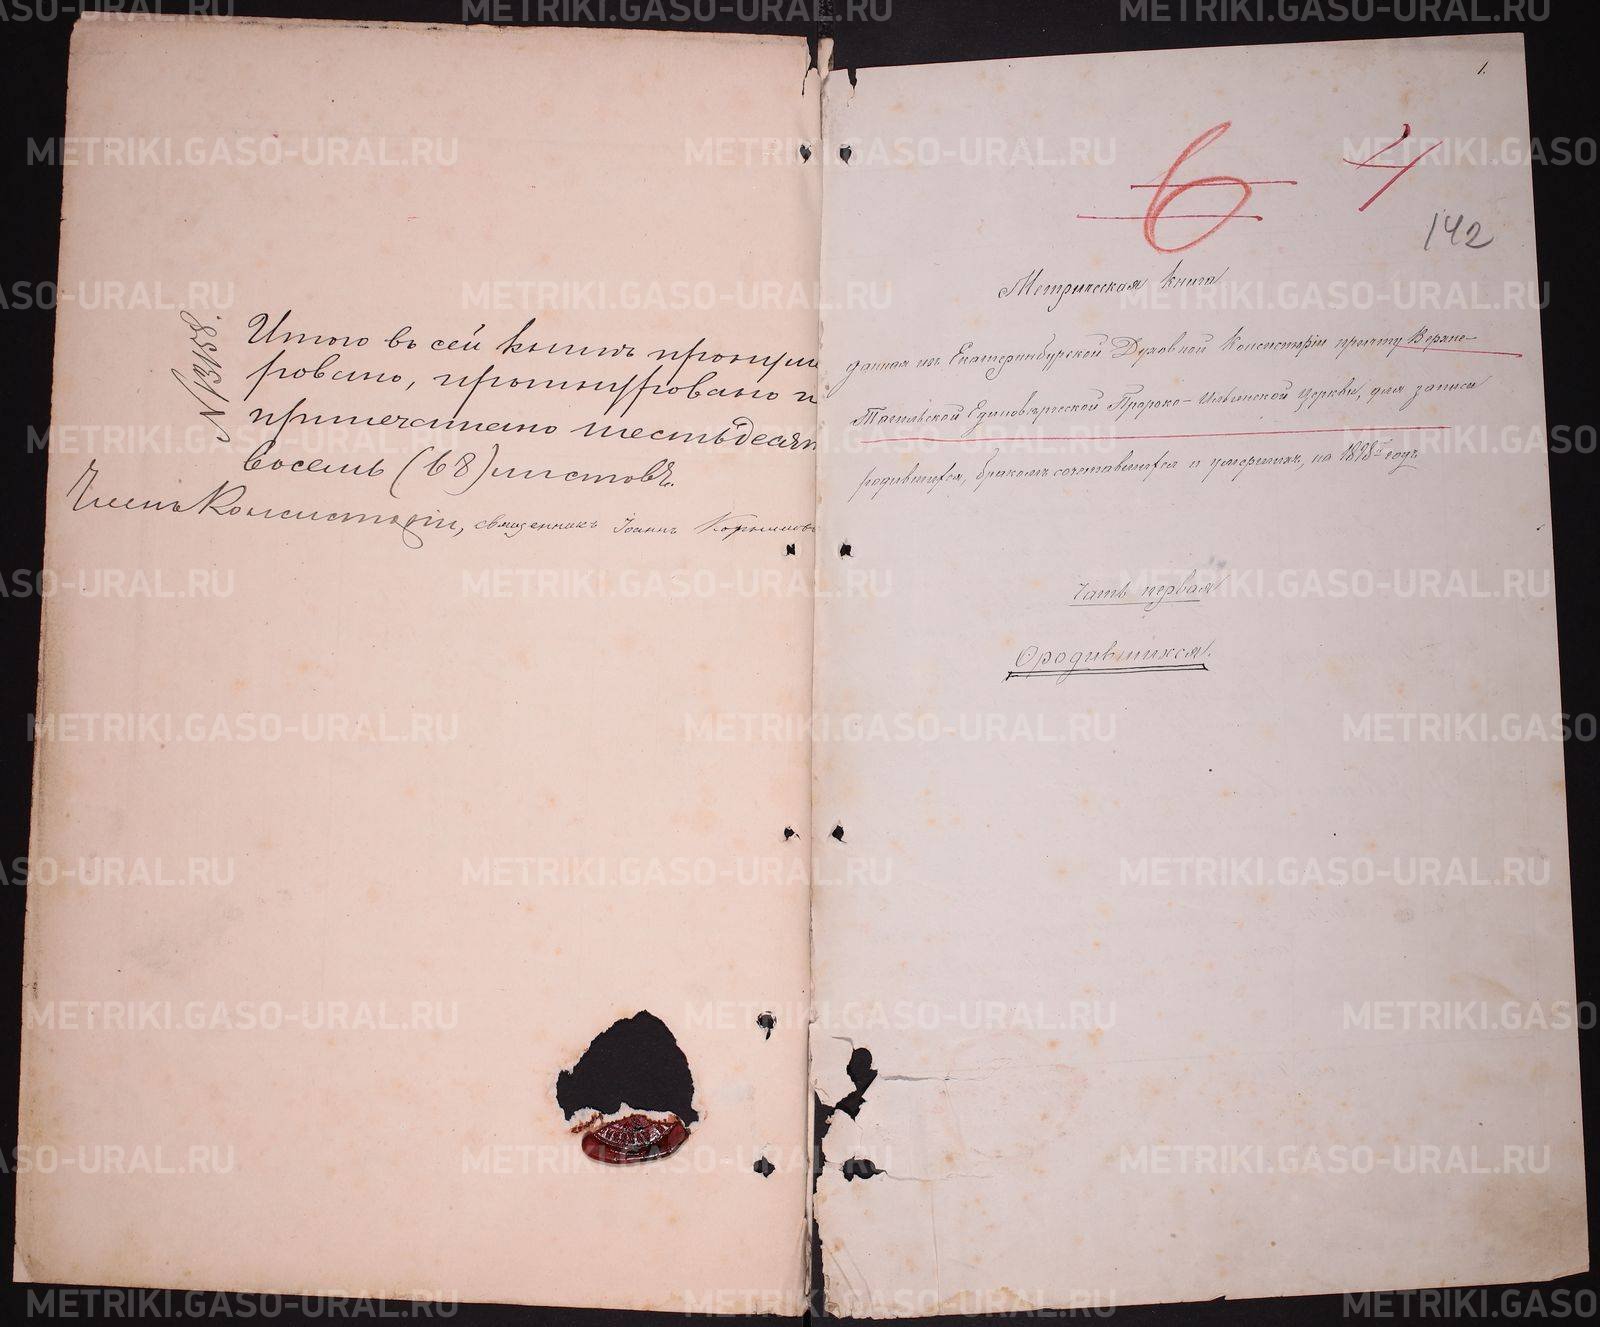 Итого въ сей книгѣ пронуме
ровано, прошнуровано и
припечатано шестьдесятъ
восемь (68) листовъ.
Членъ Консисторіи, священникъ Іоаннъ
1.
6 4
142
Метрическая книга
данная изъ Екатеринбургской Духовной Консисторіи причту Верхне-
Тагильской Единовѣрческой Пророко-Ильинской церкви, для записи
родившихся, бракомъ сочетавшихся и умершихъ, на 1898й годъ
Часть первая
О родившихся.
METRIKI.GASO-URAL.RU